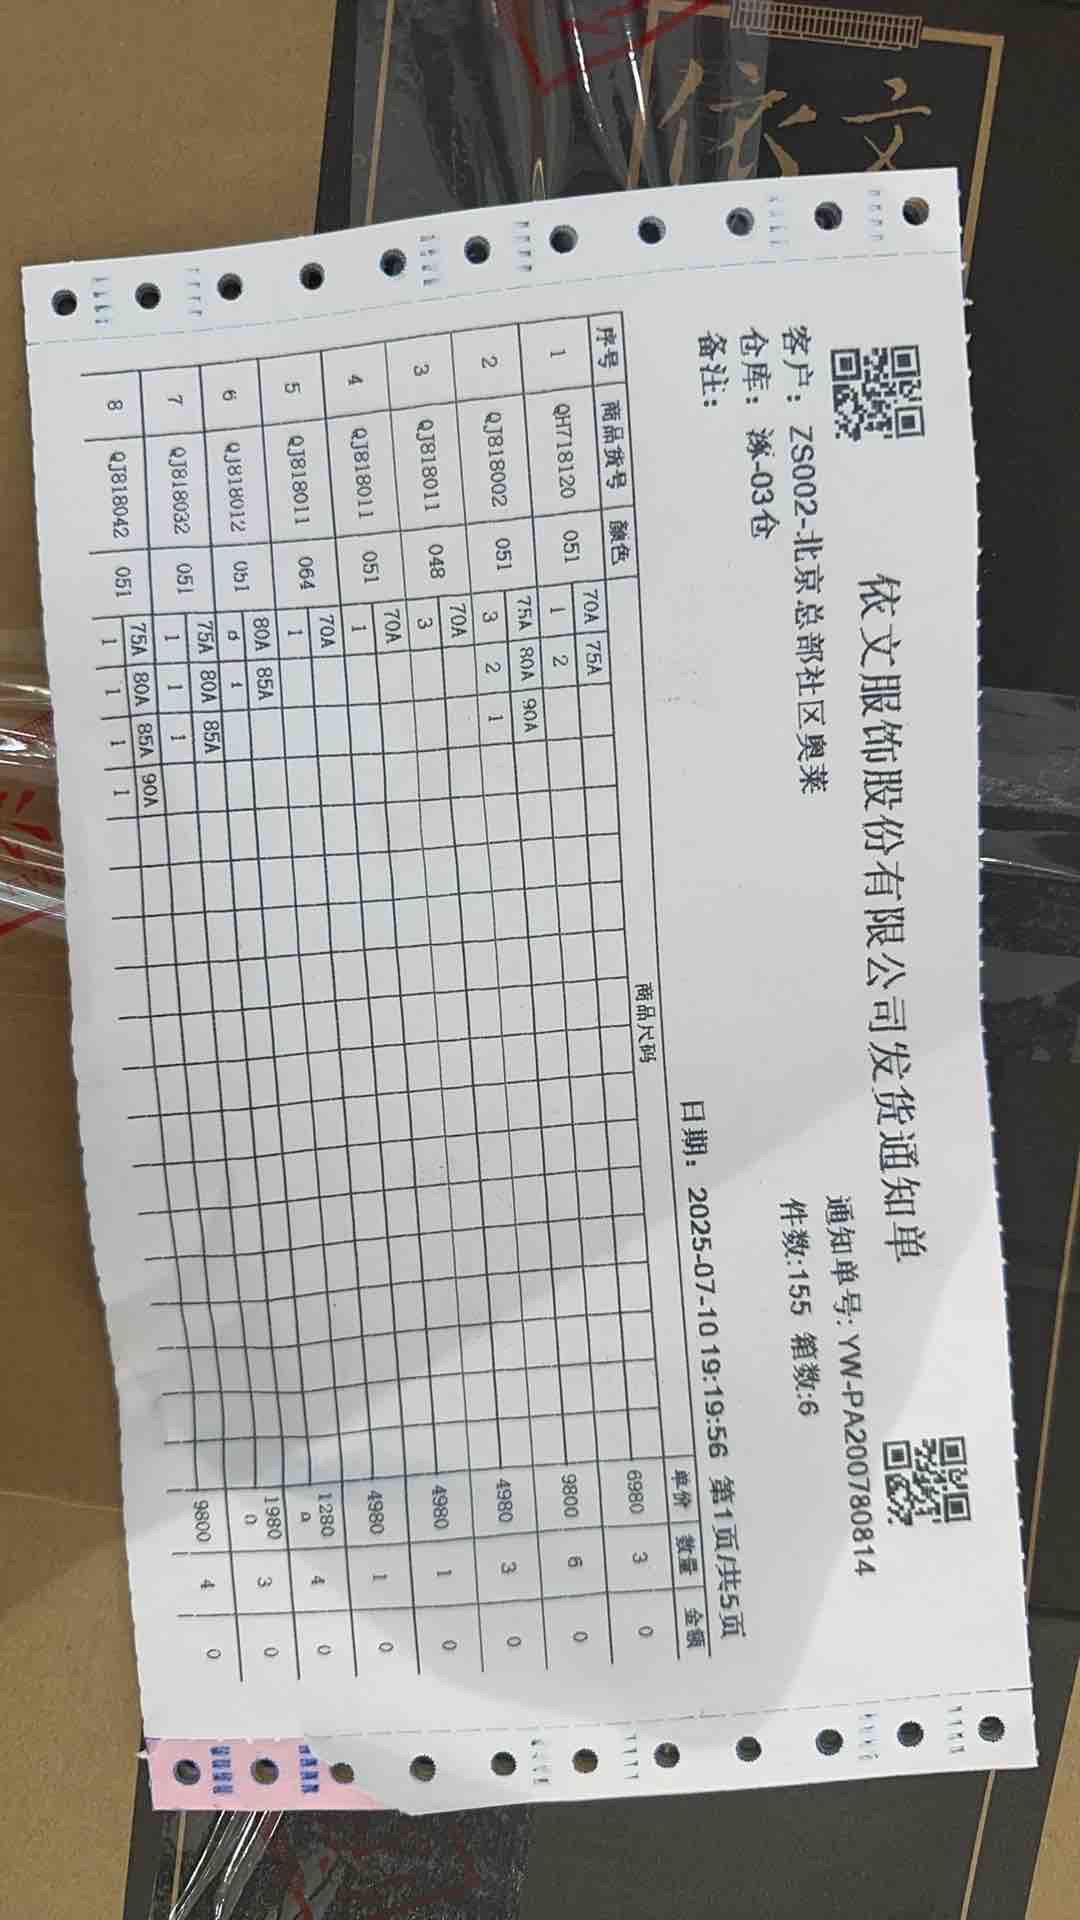 依文
依文服饰股份有限公司发货通知单
通知单号: YW-PA200780814
客户: ZS002-北京总部社区奥莱
件数:155 箱数:6
仓库: 涿-03仓
备注:
日期: 2025-07-10 19:19:56 第1页/共5页
序号 商品货号 颜色 商品尺码 单价 数量 金额
70A 75A
1 QH718120 051 1 2 6980 3 0
75A 80A 90A
2 QJ818002 051 3 2 1 9800 6 0
70A
3 QJ818011 048 3 4980 3 0
70A
4 QJ818011 051 1 4980 1 0
70A
5 QJ818011 064 1 4980 1 0
80A 85A
6 QJ818012 051 1 1280 4 0
75A 80A 85A
7 QJ818032 051 1 1 1 1980 3 0
75A 80A 85A 90A
8 QJ818042 051 1 1 1 1 9800 4 0